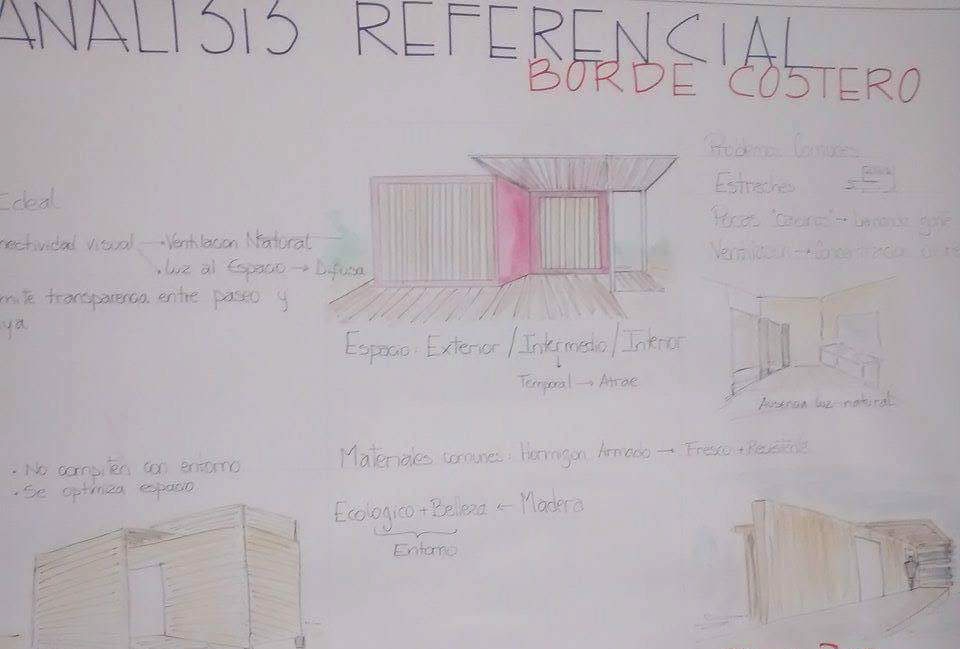 ANALISIS REFERENCIAL
BORDE COSTERO
Ideal
nectividad visual → Ventilacion Natural
Luz al Espacio → Difusa
mite transparencia entre paseo y
ya
Espacio: Exterior / Intermedio / Interior
Temporal → Atrae
Problemas Comunes
Estreches
Pocas
Ventilacion →
Ausencia luz natural
Materiales comunes: Hormigon Armado → Fresco + Resistente
Ecologico + Belleza ← Madera
Entorno
• No compiten con entorno
• Se optimiza espacio